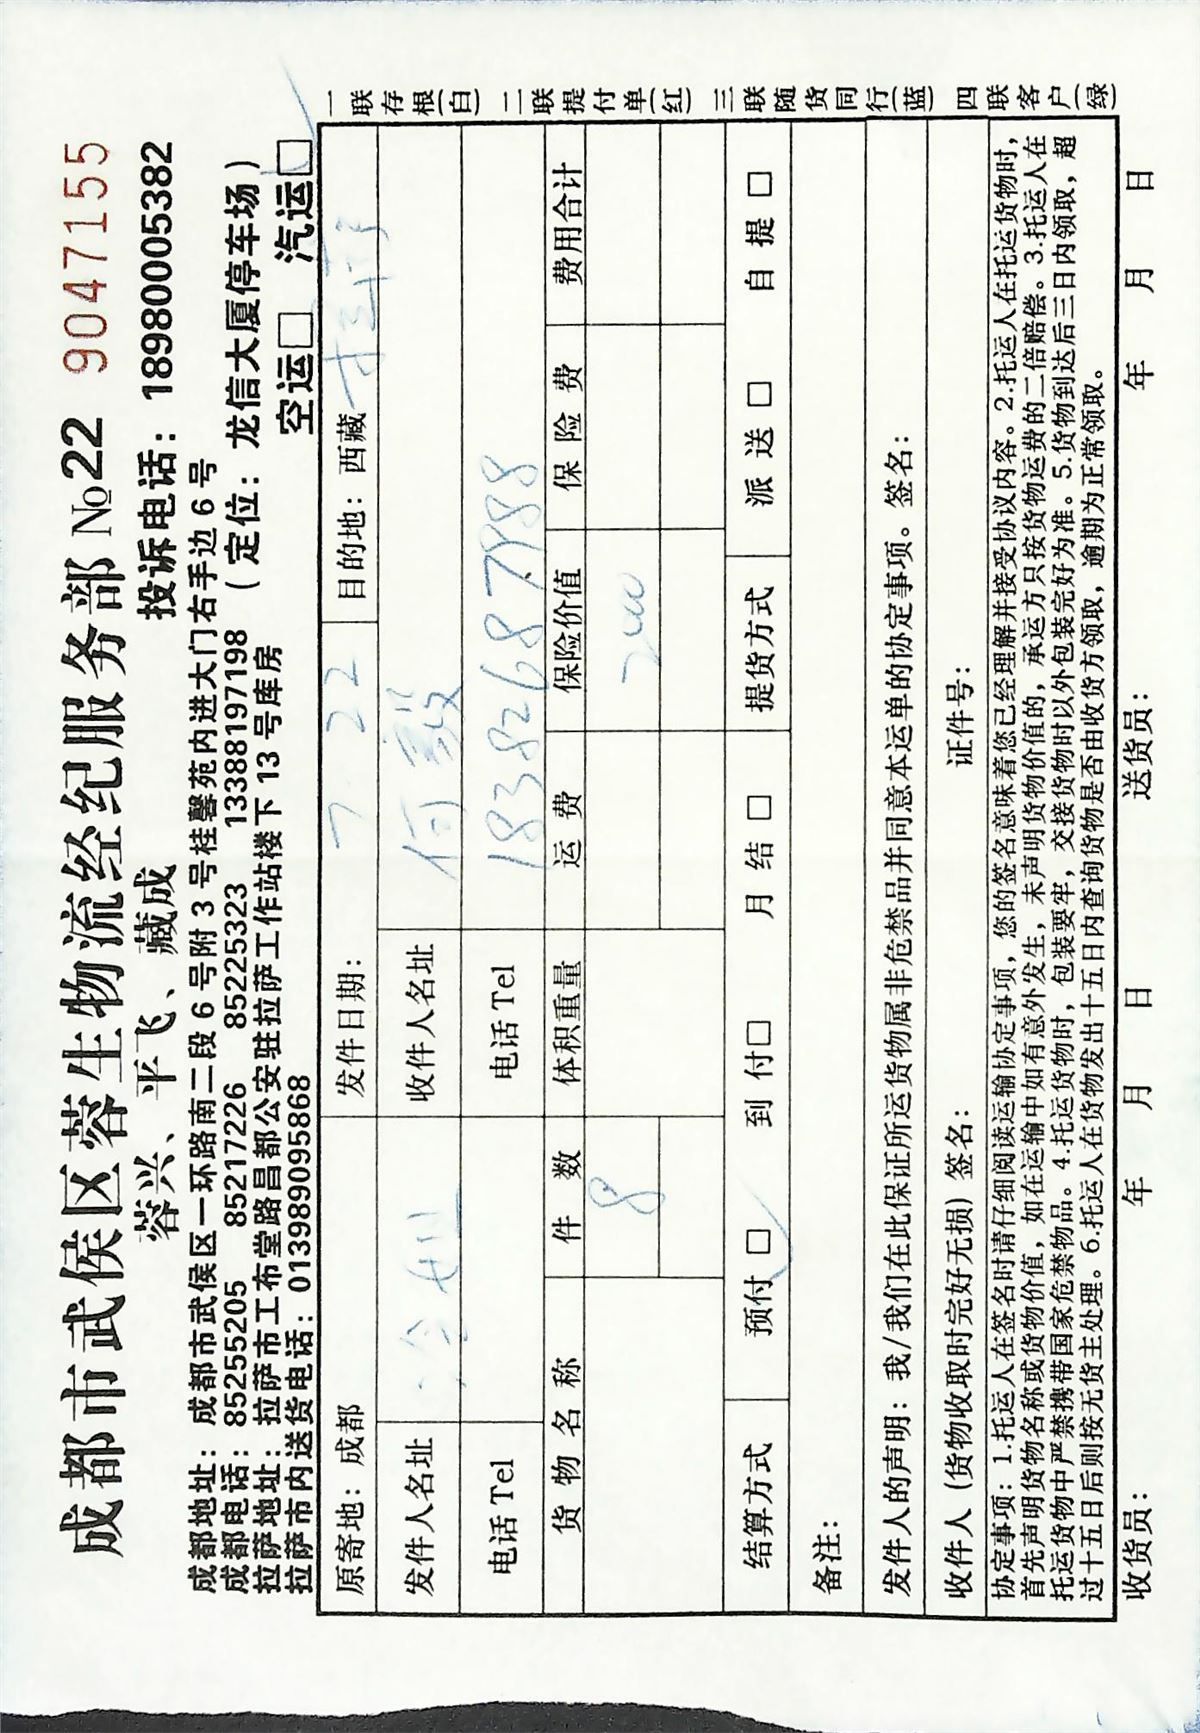 成都市武侯区蓉生物流经纪服务部 №22 9047155
蓉兴、平飞、藏成 投诉电话：18980005382
成都地址：成都市武侯区一环路南二段6号附3号桂馨苑内进大门右手边6号
成都电话：85255205 85217226 85225323 13388197198（定位：龙信大厦停车场）
拉萨地址：拉萨市工布堂路昌都公安驻拉萨工作站楼下13号库房
拉萨市内送货电话：013989095868 空运□ 汽运□
原寄地：成都 发件日期：7.22 目的地：西藏
发件人名址 收件人名址 何毅
电话Tel 电话Tel 18382687988
货物名称 件数 体积重量 运费 保险价值 保险费 费用合计
8 2000
结算方式 预付□ 到付□ 月结□ 提货方式 派送□ 自提□
备注：
发件人的声明：我/我们在此保证所运货物属非危禁品并同意本运单的协定事项。签名：
收件人（货物收取时完好无损）签名： 证件号：
协定事项：1.托运人在签名时请仔细阅读运输协定事项，您的签名意味着您已经理解并接受协议内容。2.托运人在托运货物时，
首先声明货物名称或货物价值，如在运输中如有意外发生，未声明货物价值的，承运方只按货物运费的二倍赔偿。3.托运人在
托运货物中严禁携带国家危禁物品。4.托运货物时，包装要牢，交接货物时以外包装完好为准。5.货物到达后三日内领取，超
过十五日后则按无货主处理。6.托运人在货物发出十五日内查询货物是否由收货方领取，逾期为正常领取。
收货员： 年 月 日 送货员： 年 月 日
一联存根(白) 二联提付单(红) 三联随货同行(蓝) 四联客户(绿)